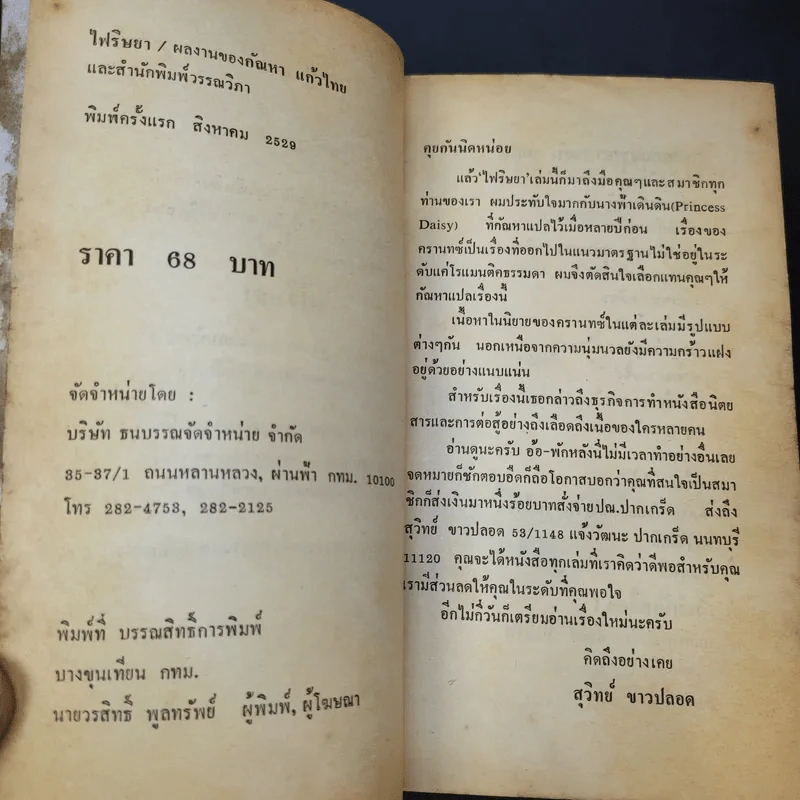 ไฟริษยา / ผลงานของกัณหา แก้วไทย
และสำนักพิมพ์วรรณวิภา
พิมพ์ครั้งแรก สิงหาคม 2529
ราคา 68 บาท
จัดจำหน่ายโดย :
บริษัท ธนบรรณจัดจำหน่าย จำกัด
35-37/1 ถนนหลานหลวง, ผ่านฟ้า กทม. 10100
โทร 282-4753, 282-2125
พิมพ์ที่ บรรณสิทธิ์การพิมพ์
บางขุนเทียน กทม.
นายวรสิทธิ์ พูลทรัพย์ ผู้พิมพ์, ผู้โฆษณา
คุยกันนิดหน่อย
แล้ว'ไฟริษยา'เล่มนี้ก็มาถึงมือคุณๆและสมาชิกทุก
ท่านของเรา ผมประทับใจมากกับนางฟ้าเดินดิน(Princess
Daisy) ที่กัณหาแปลไว้เมื่อหลายปีก่อน เรื่องของ
ครานทซ์เป็นเรื่องที่ออกไปในแนวมาตรฐานไม่ใช่อยู่ในระ
ดับแค่โรแมนติคธรรมดา ผมจึงตัดสินใจเลือกแทนคุณๆให้
กัณหาแปลเรื่องนี้
เนื้อหาในนิยายของครานทซ์ในแต่ละเล่มมีรูปแบบ
ต่างๆกัน นอกเหนือจากความนุ่มนวลยังมีความกร้าวแฝง
อยู่ด้วยอย่างแนบแน่น
สำหรับเรื่องนี้เธอกล่าวถึงธุรกิจการทำหนังสือนิตย
สารและการต่อสู้อย่างถึงเลือดถึงเนื้อของใครหลายคน
อ่านดูนะครับ อ้อ-พักหลังนี่ไม่มีเวลาทำอย่างอื่นเลย
จดหมายก็ชักตอบอืดก็ถือโอกาสบอกว่าคุณที่สนใจเป็นสมา
ชิกก็ส่งเงินมาหนึ่งร้อยบาทสั่งจ่ายปณ.ปากเกร็ด ส่งถึง
สุวิทย์ ขาวปลอด 53/1148 แจ้งวัฒนะ ปากเกร็ด นนทบุรี
11120 คุณจะได้หนังสือทุกเล่มที่เราคิดว่าดีพอสำหรับคุณ
เรามีส่วนลดให้คุณในระดับที่คุณพอใจ
อีกไม่กี่วันก็เตรียมอ่านเรื่องใหม่นะครับ
คิดถึงอย่างเคย
สุวิทย์ ขาวปลอด